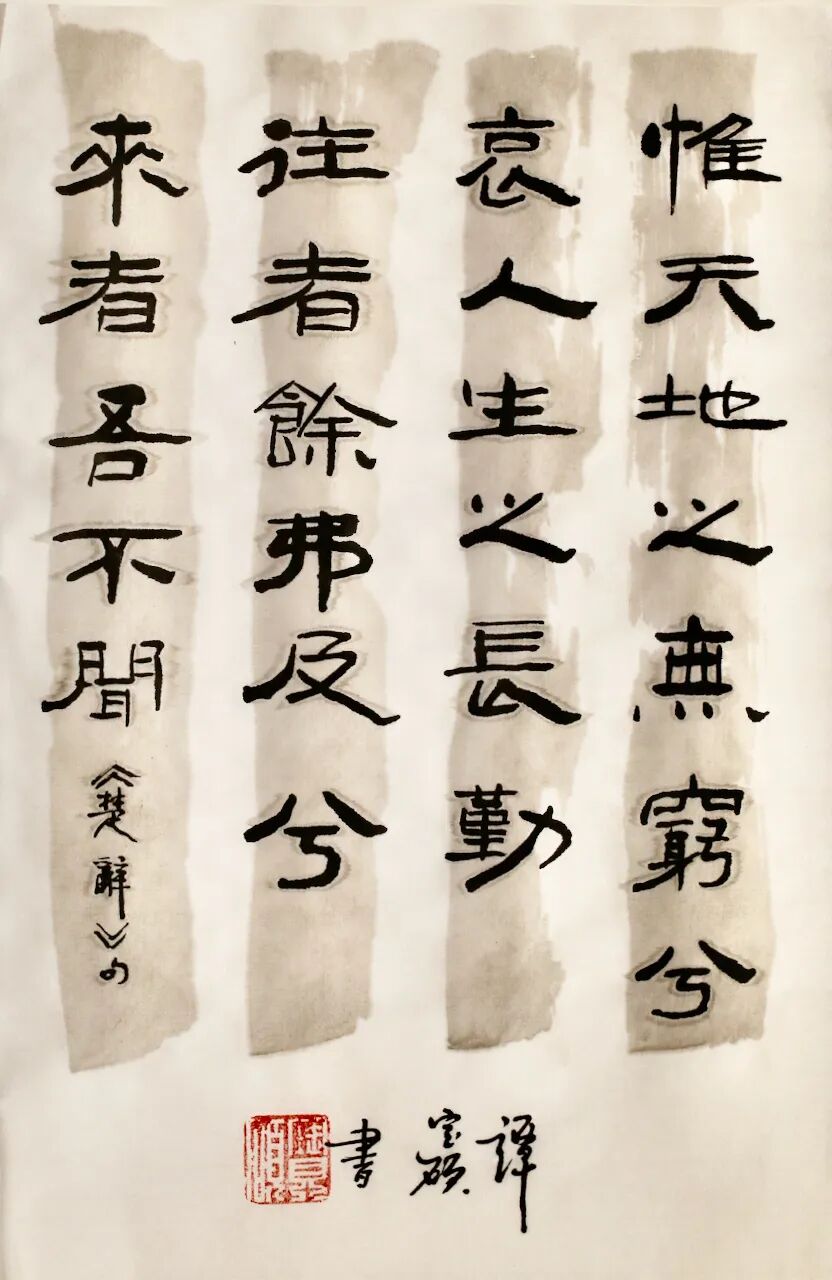 惟天地之無窮兮
哀人生之長勤
往者餘弗及兮
來者吾不聞
《楚辭》句
譚寶碩書